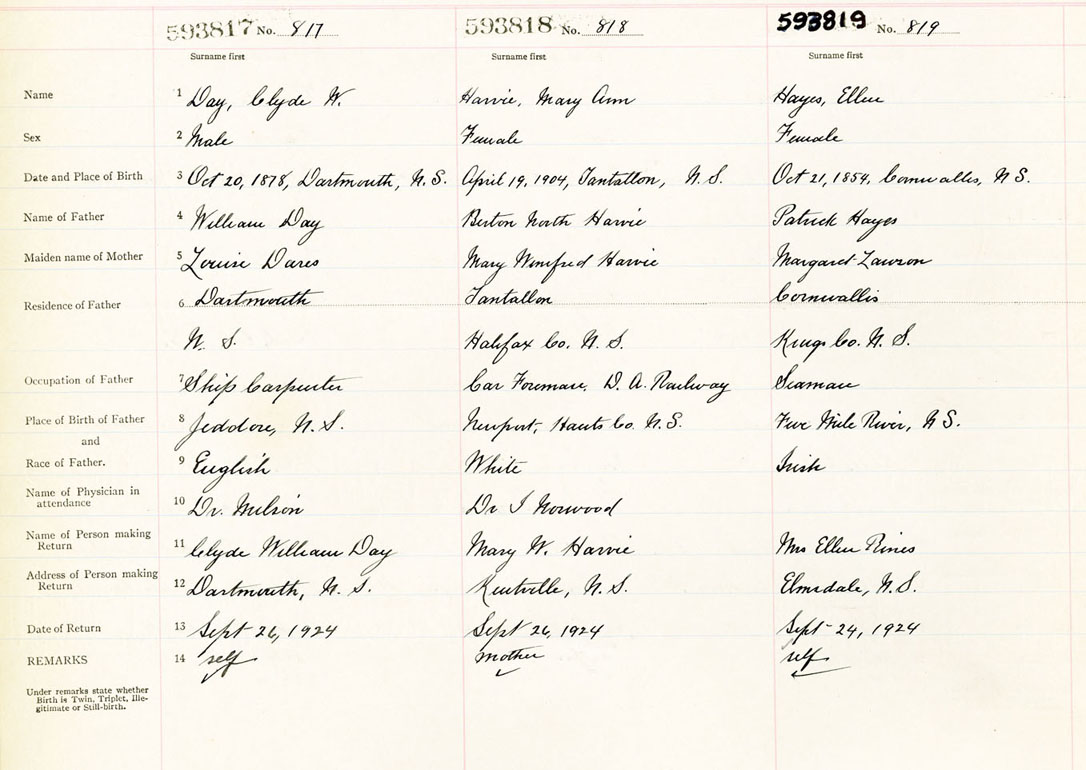 593817 No. 817 593818 No. 818 593819 No. 819
Surname first Surname first Surname first
Name 1 Day, Clyde W. Harvie, Mary Ann Hayes, Ellen
Sex 2 Male Female Female
Date and Place of Birth 3 Oct 20, 1878, Dartmouth, N.S. April 19, 1904, Tantallon, N.S. Oct 21, 1854, Cornwallis, N S.
Name of Father 4 William Day Burton North Harvie Patrick Hayes
Maiden name of Mother 5 Louise Dares Mary Winifred Harvie Margaret Lawson
Residence of Father 6 Dartmouth Tantallon Cornwallis
N. S. Halifax Co. N. S. Kings Co. N. S.
Occupation of Father 7 Ship Carpenter Car Foreman, D. A. Railway Seaman
Place of Birth of Father 8 Jeddore, N.S. Newport, Hants Co. N.S. Five Mile River, N S.
and
Race of Father. 9 English White Irish
Name of Physician in
attendance 10 Dr. Milson Dr I Norwood
Name of Person making
Return 11 Clyde William Day Mary W. Harvie Mrs Ellen Rines
Address of Person making
Return 12 Dartmouth, N. S. Kentville, N. S. Elmsdale, N.S.
Date of Return 13 Sept 26, 1924 Sept 26, 1924 Sept 24, 1924
REMARKS 14 self mother self
Under remarks state whether
Birth is Twin, Triplet, Ille-
gitimate or Still-birth.